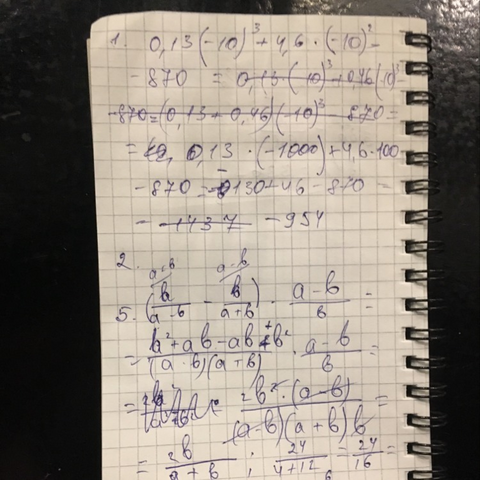 1. 0,13(-10)³ + 4,6 · (-10)² -
- 870 = 0,13 · (-10)³ + 0,46(10)³ -
- 870 = (0,13 + 0,46)(-10)³ - 870 =
= 0,13 · (-1000) + 4,6 · 100
- 870 = -130 + 46 - 870 =
- 1437 - 954
2.
a+b a-b
5. (b/(a-b) - b/(a+b)) · (a-b)/b =
= (b² + ab - ab + b²)/((a-b)(a+b)) · (a-b)/b =
= 2b² · (a-b)/((a-b)(a+b)b) =
= 2b/(a+b) ; 24/(4+12) = 24/16 =